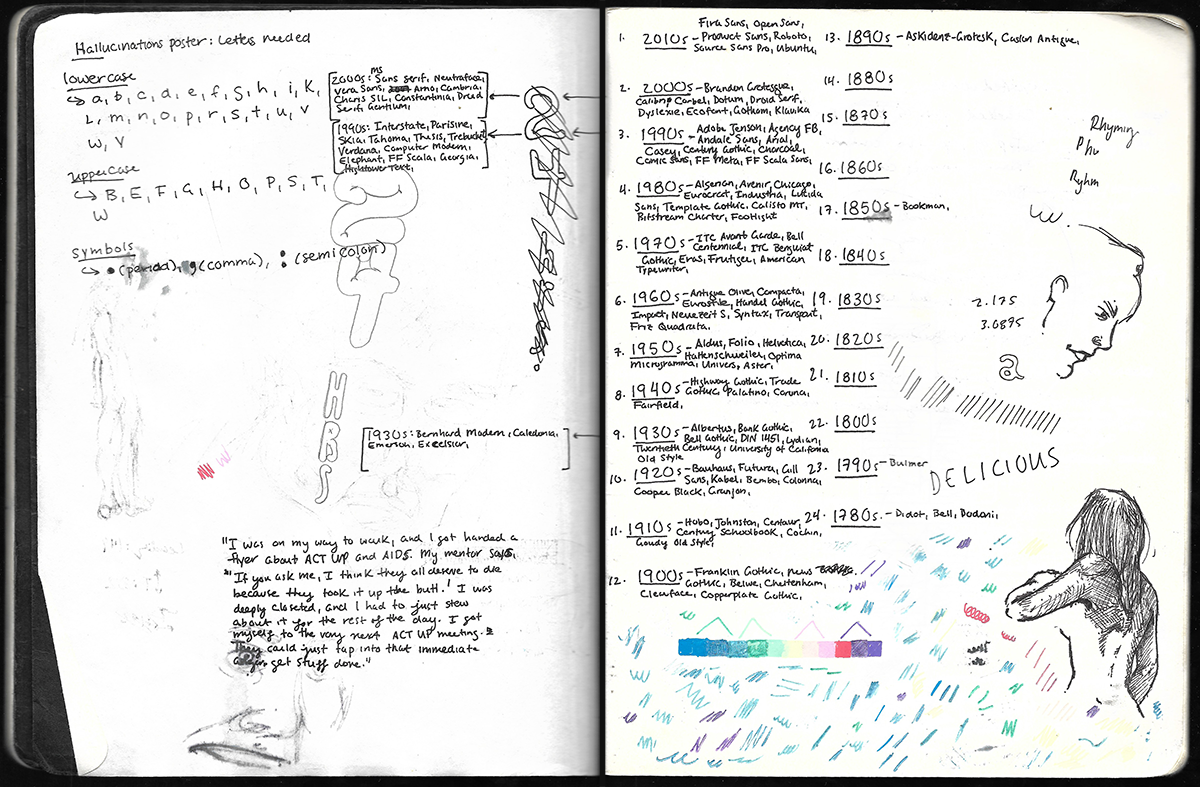 Hallucinations poster: Letters needed
lowercase
a, b, c, d, e, f, g, h, i, k,
L, m, n, o, p, r, s, t, u, v
w, y
uppercase
B, E, F, G, H, O, P, S, T,
W
symbols
(period), (comma), (semicolon)
ms
2000s: Sans Serif, Neutraface,
Vera Sans, Arno, Cambria,
Charis SIL, Constantia, Droid
Serif, Gentium,
1990s: Interstate, Parisine,
Skia, Tahoma, Thesis, Trebuchet,
Verdana, Computer Modern,
Elephant, FF Scala, Georgia,
Hightower Text,
HBS
1930s: Bernhard Modern, Caledonia,
Emerson, Excelsior,
"I was on my way to work, and I got handed a
flyer about ACT UP and AIDS. My mentor says,
"If you ask me, I think they all deserve to die
because they took it up the butt.' I was
deeply closeted, and I had to just stew
about it for the rest of the day. I got
myself to the very next ACT UP meeting.
They could just tap into that immediate
get stuff done."
Fira Sans, Open Sans,
1. 2010s - Product Sans, Roboto,
Source Sans Pro, Ubuntu,
2. 2000s - Brandon Grotesque,
Calibri, Corbel, Dotum, Droid Serif,
Dyslexie, Ecofont, Gotham, Klavika
3. 1990s - Adobe Jenson, Agency FB,
Andale Sans, Arial,
Casey, Century Gothic, Charcoal,
Comic Sans, FF Meta, FF Scala Sans,
4. 1980s - Algerian, Avenir, Chicago,
Eurocrat, Industria, Lucida
Sans, Template Gothic, Calisto MT,
Bitstream Charter, Footlight
5. 1970s - ITC Avant Garde, Bell
Centennial, ITC Benguiat
Gothic, Eras, Frutiger, American
Typewriter,
6. 1960s - Antique Olive, Compacta,
Eurostile, Handel Gothic,
Impact, Neuzeit S, Syntax, Transport,
Friz Quadrata.
7. 1950s - Aldus, Folio, Helvetica,
Hattenschweiler, Optima
Microgramma, Univers, Aster,
8. 1940s - Highway Gothic, Trade
Gothic, Palatino, Corona,
Fairfield,
9. 1930s - Albertus, Bank Gothic,
Bell Gothic, DIN 1451, Lydian,
Twentieth Century, University of California
Old Style
10. 1920s - Bauhaus, Futura, Gill
Sans, Kabel, Bembo, Colonna,
Cooper Black, Granjon,
11. 1910s - Hobo, Johnston, Centaur,
Century Schoolbook, Cochin,
Goudy Old Style,
12. 1900s - Franklin Gothic, News
Gothic, Belwe, Cheltenham,
Clearface, Copperplate Gothic,
13. 1890s - Askidenz-Grotesk, Caslon Antique,
14. 1880s
15. 1870s
16. 1860s
17. 1850s - Bookman,
18. 1840s
19. 1830s
20. 1820s
21. 1810s
22. 1800s
23. 1790s - Bulmer
24. 1780s - Didot, Bell, Bodoni,
Rhyming
Phu
Ryhm
2.175
3.0895
a
DELICIOUS